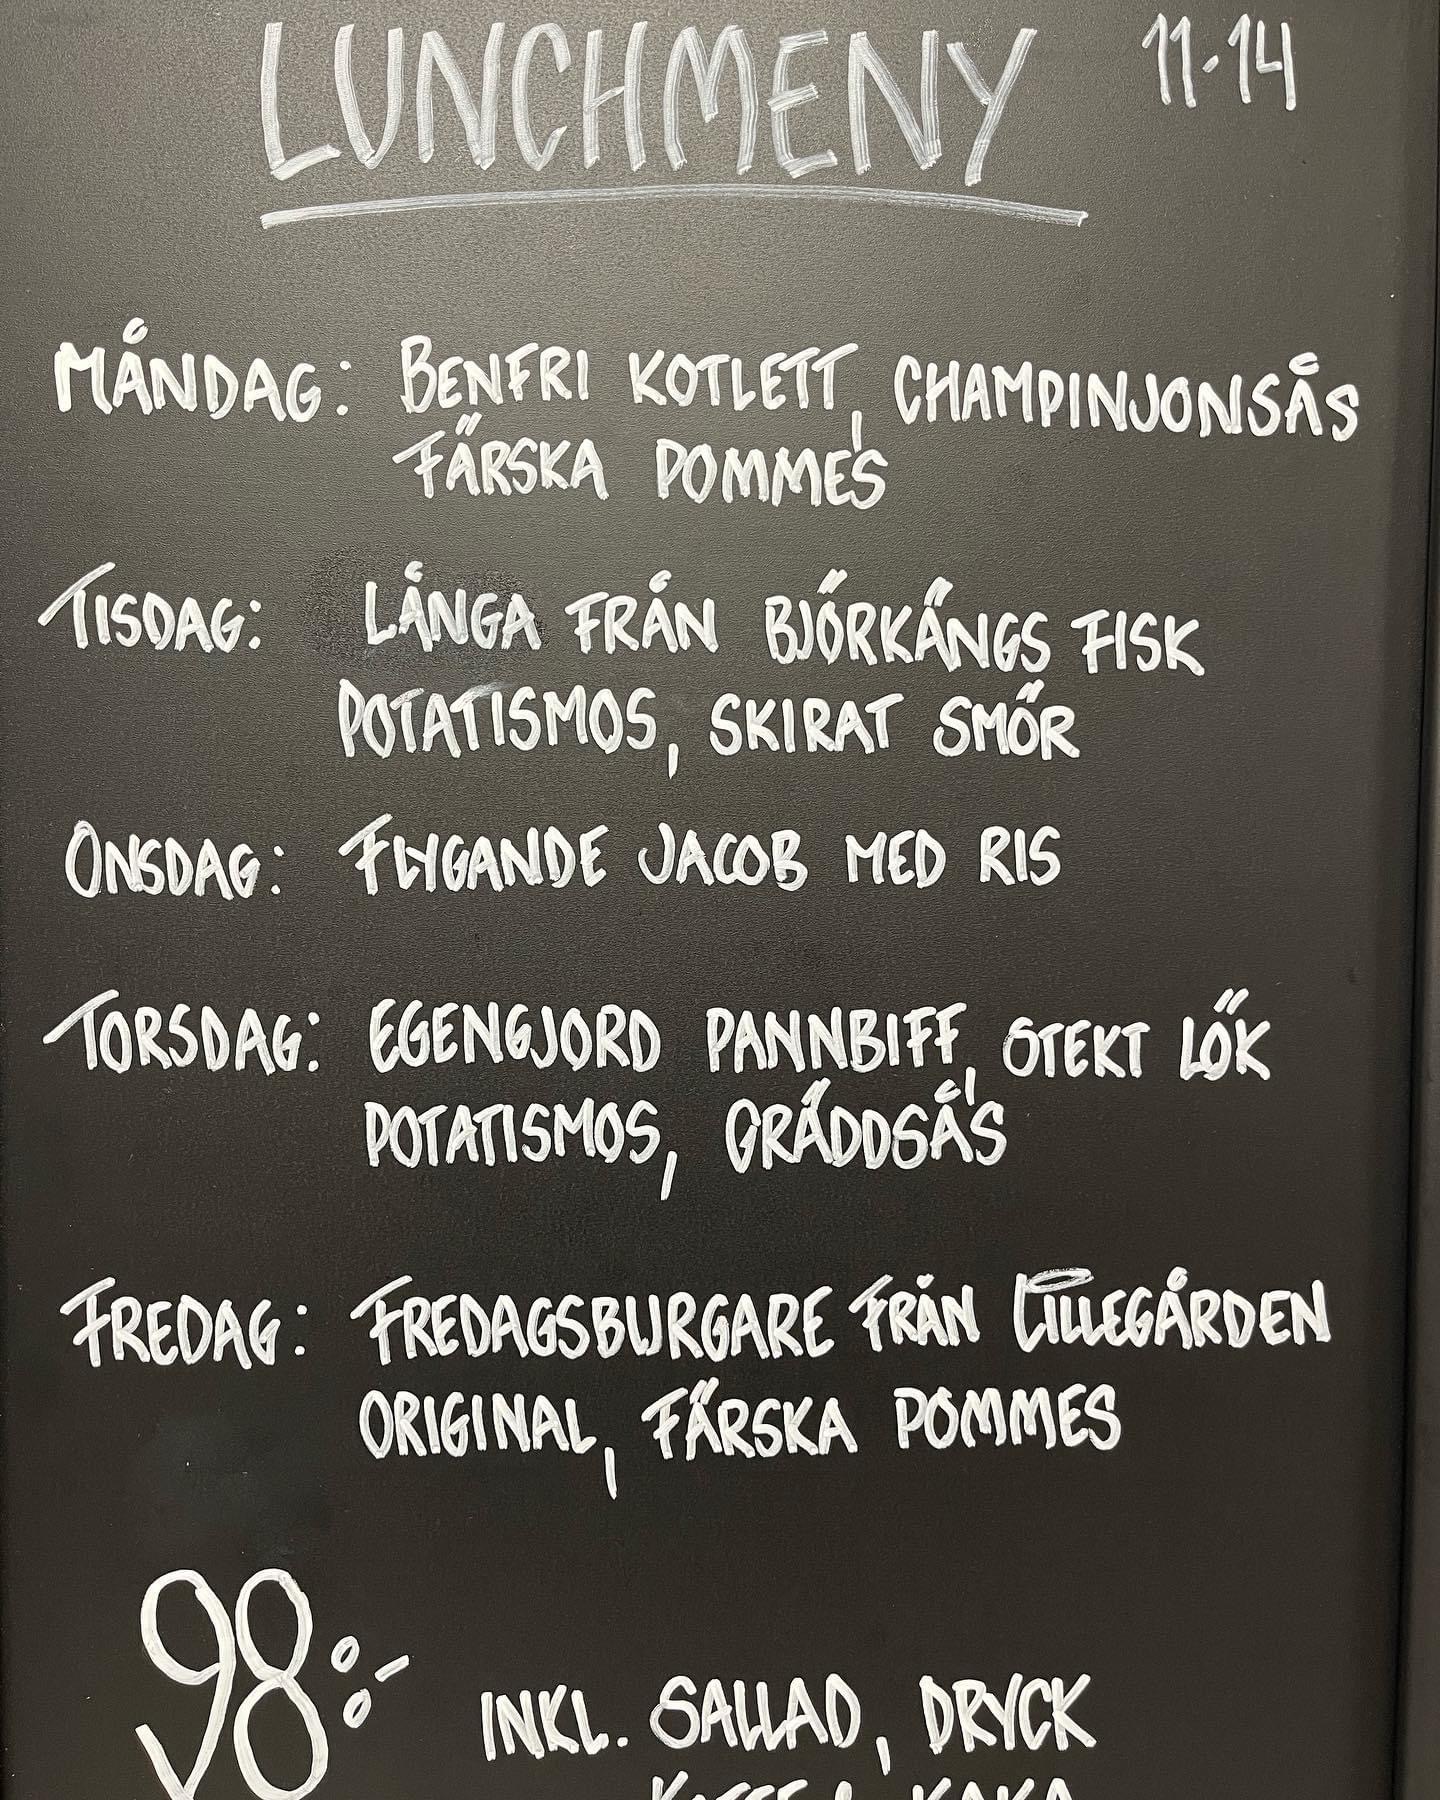 LUNCHMENY 11-14
MÅNDAG: BENFRI KOTLETT, CHAMPINJONSÅS
FÄRSKA POMMES
TISDAG: LÅNGA FRÅN BJÖRKÄNGS FISK
POTATISMOS, SKIRAT SMÖR
ONSDAG: FLYGANDE JACOB MED RIS
TORSDAG: EGENGJORD PANNBIFF, STEKT LÖK
POTATISMOS, GRÄDDSÅS
FREDAG: FREDAGSBURGARE FRÅN LILLEGÅRDEN
ORIGINAL, FÄRSKA POMMES
98:-
INKL. SALLAD, DRYCK
KAFFE & KAKA